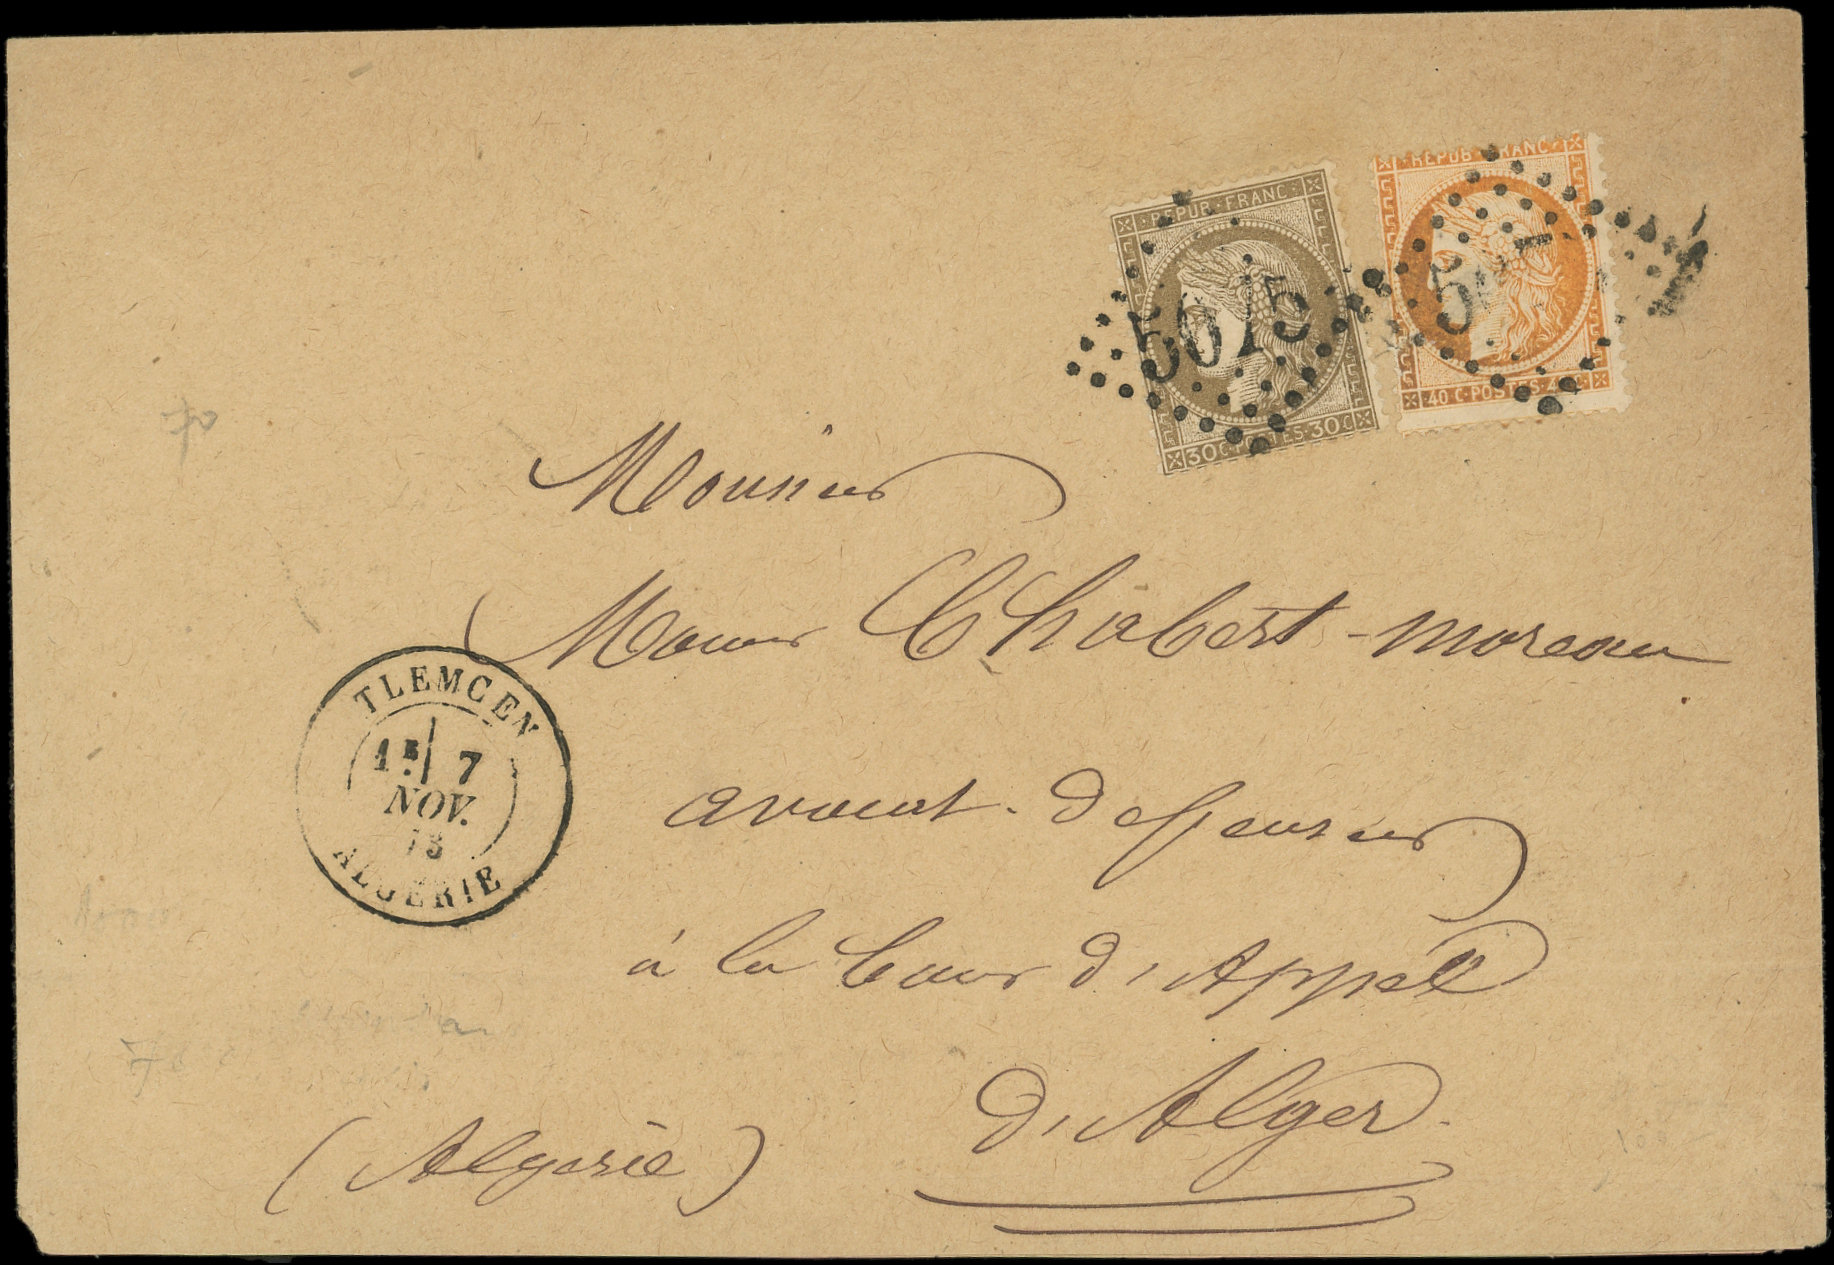 REPUB · FRANC
REPUB · FRANC
5015
30 C · POSTES · 30 C
40 C · POSTES · 40 C
70
Monsieur
Chabert-Moreau
avocat-deffenseur
à la Cour d'Appel
d'Alger
(Algérie)
TLEMCEN
1E 7
NOV.
73
ALGERIE